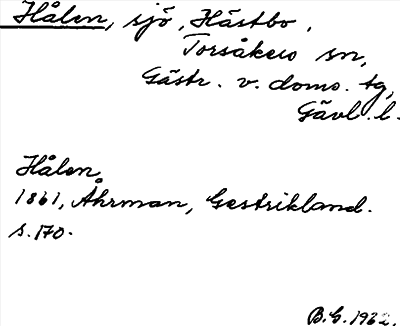 Hålen, sjö, Hästbo,
Torsåkers sn,
Gästr. v. doms. tg,
Gävl. l.
Hålen
1861, Åhrman, Gestrikland.
s. 170.
B.G. 1932.